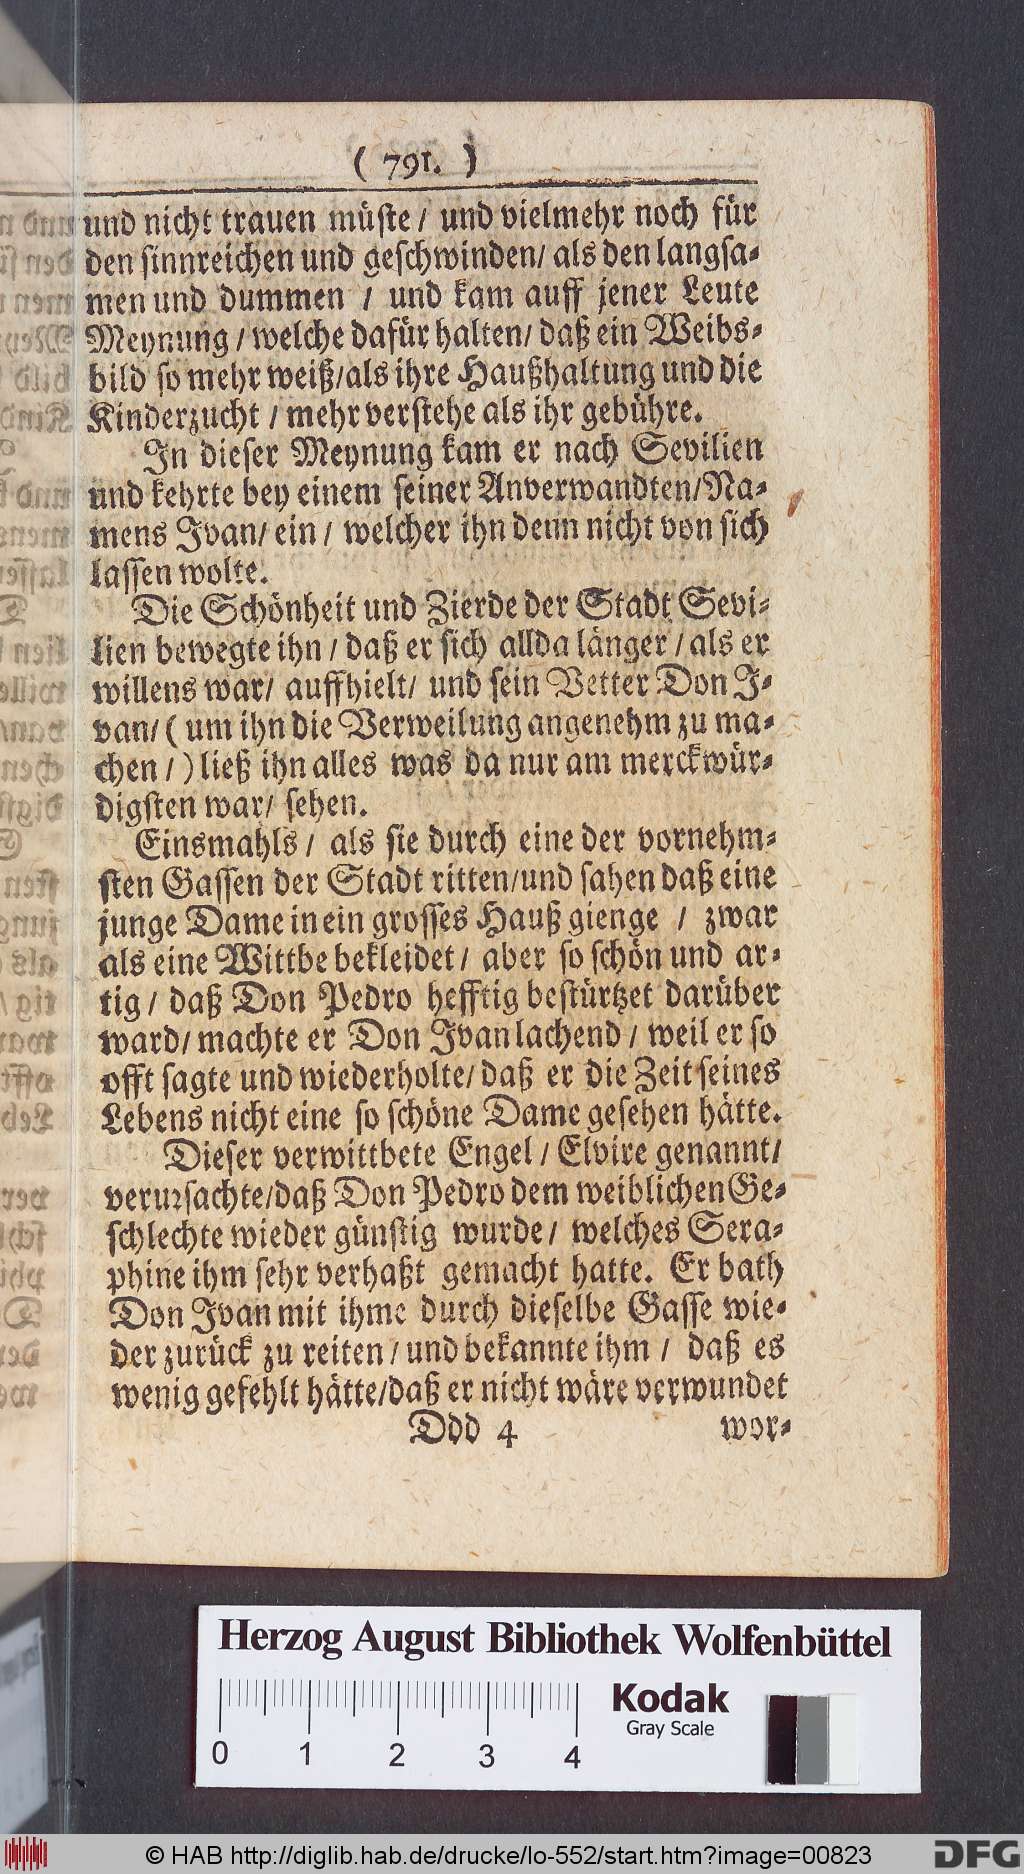 ( 791. )
und nicht trauen müste / und vielmehr noch für
den sinnreichen und geschwinden / als den langsa-
men und dummen / und kam auff jener Leute
Meynung / welche dafür halten / daß ein Weibs-
bild so mehr weiß / als ihre Haußhaltung und die
Kinderzucht / mehr verstehe als ihr gebühre.
In dieser Meynung kam er nach Sevilien
und kehrte bey einem seiner Anverwandten / Na-
mens Jvan / ein / welcher ihn denn nicht von sich
lassen wolte.
Die Schönheit und Zierde der Stadt Sevi-
lien bewegte ihn / daß er sich allda länger / als er
willens war / auffhielt / und sein Vetter Don J-
van / ( um ihn die Verweilung angenehm zu ma-
chen / ) ließ ihn alles was da nur am merckwür-
digsten war / sehen.
Einsmahls / als sie durch eine der vornehm-
sten Gassen der Stadt ritten / und sahen daß eine
junge Dame in ein grosses Hauß gienge / zwar
als eine Wittbe bekleidet / aber so schön und ar-
tig / daß Don Pedro hefftig bestürtzet darüber
ward / machte er Don Jvan lachend / weil er so
offt sagte und wiederholte / daß er die Zeit seines
Lebens nicht eine so schöne Dame gesehen hätte.
Dieser verwittbete Engel / Elvire genannt /
verursachte / daß Don Pedro dem weiblichen Ge-
schlechte wieder günstig wurde / welches Sera-
phine ihm sehr verhaßt gemacht hatte. Er bath
Don Jvan mit ihme durch dieselbe Gasse wie-
der zurück zu reiten / und bekannte ihm / daß es
wenig gefehlt hätte / daß er nicht wäre verwundet
Ddd 4 wor-
Herzog August Bibliothek Wolfenbüttel
0 1 2 3 4
Kodak
Gray Scale
© HAB http://diglib.hab.de/drucke/lo-552/start.htm?image=00823
DFG